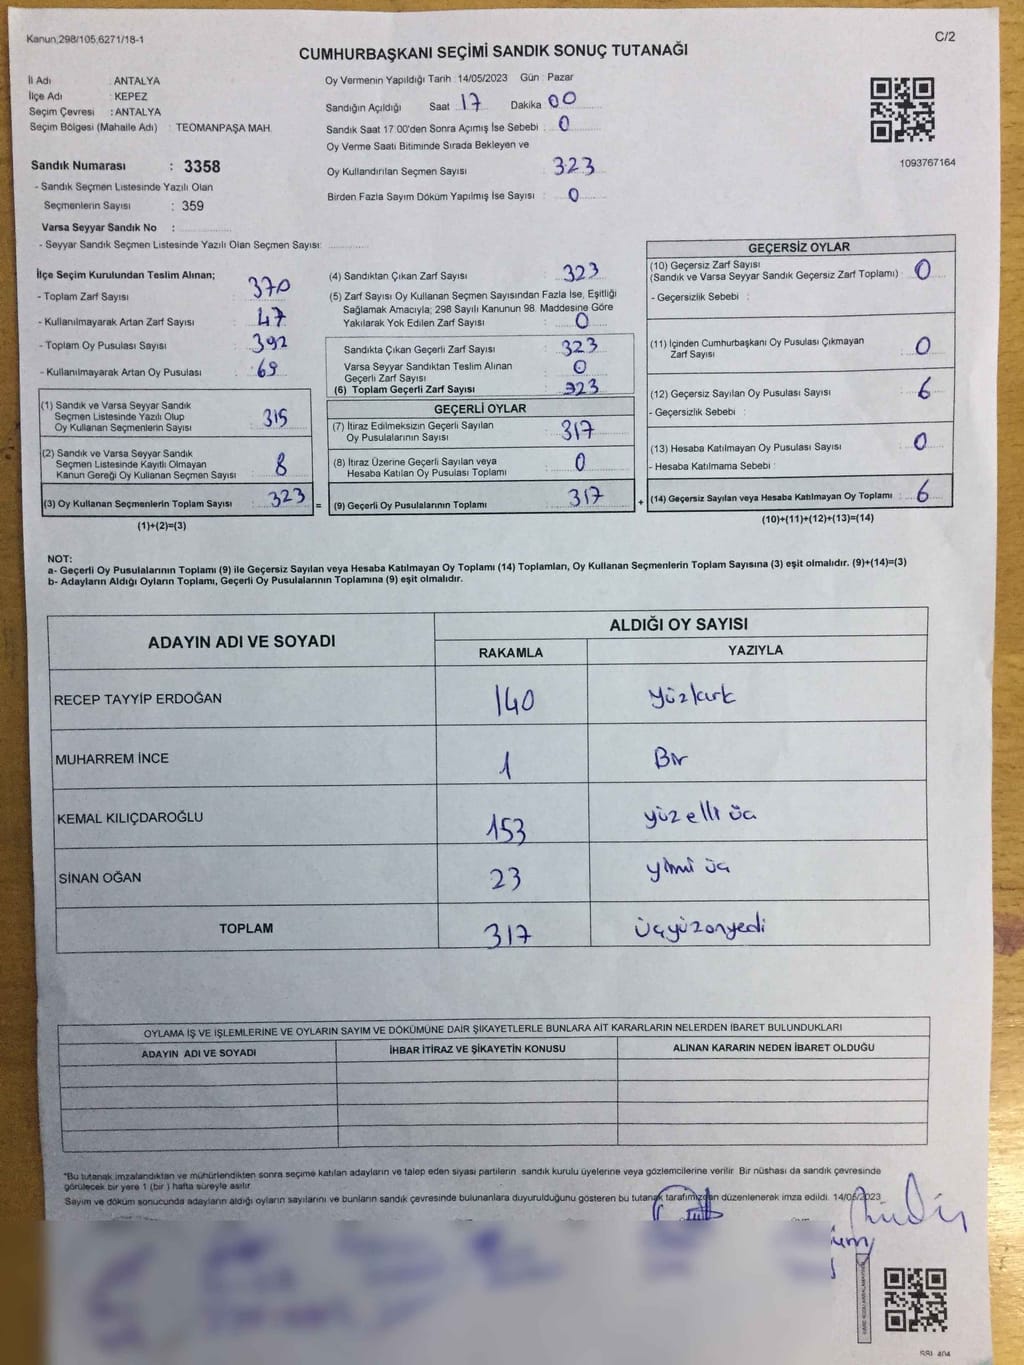 Kanun,298/105,6271/18-1
C/2
CUMHURBAŞKANI SEÇİMİ SANDIK SONUÇ TUTANAĞI
İl Adı : ANTALYA
İlçe Adı : KEPEZ
Seçim Çevresi : ANTALYA
Seçim Bölgesi (Mahalle Adı) : TEOMANPAŞA MAH.
Sandık Numarası : 3358
- Sandık Seçmen Listesinde Yazılı Olan
Seçmenlerin Sayısı : 359
Varsa Seyyar Sandık No :
- Seyyar Sandık Seçmen Listesinde Yazılı Olan Seçmen Sayısı:
Oy Vermenin Yapıldığı Tarih : 14/05/2023 Gün : Pazar
Sandığın Açıldığı Saat : 17 Dakika : 00
Sandık Saat 17:00'den Sonra Açımış İse Sebebi : 0
Oy Verme Saati Bitiminde Sırada Bekleyen ve
Oy Kullandırılan Seçmen Sayısı : 323
Birden Fazla Sayım Döküm Yapılmış İse Sayısı : 0
1093767164
İlçe Seçim Kurulundan Teslim Alınan;
- Toplam Zarf Sayısı : 370
- Kullanılmayarak Artan Zarf Sayısı : 47
- Toplam Oy Pusulası Sayısı : 392
- Kullanılmayarak Artan Oy Pusulası : 69
(1) Sandık ve Varsa Seyyar Sandık
Seçmen Listesinde Yazılı Olup
Oy Kullanan Seçmenlerin Sayısı : 315
(2) Sandık ve Varsa Seyyar Sandık
Seçmen Listesinde Kayıtlı Olmayan
Kanun Gereği Oy Kullanan Seçmen Sayısı : 8
(3) Oy Kullanan Seçmenlerin Toplam Sayısı : 323 =
(1)+(2)=(3)
(4) Sandıktan Çıkan Zarf Sayısı : 323
(5) Zarf Sayısı Oy Kullanan Seçmen Sayısından Fazla İse, Eşitliği
Sağlamak Amacıyla; 298 Sayılı Kanunun 98. Maddesine Göre
Yakılarak Yok Edilen Zarf Sayısı : 0
Sandıkta Çıkan Geçerli Zarf Sayısı : 323
Varsa Seyyar Sandıktan Teslim Alınan
Geçerli Zarf Sayısı : 0
(6) Toplam Geçerli Zarf Sayısı : 323
GEÇERLİ OYLAR
(7) İtiraz Edilmeksizin Geçerli Sayılan
Oy Pusulalarının Sayısı : 317
(8) İtiraz Üzerine Geçerli Sayılan veya
Hesaba Katılan Oy Pusulası Toplamı : 0
(9) Geçerli Oy Pusulalarının Toplamı : 317 +
GEÇERSİZ OYLAR
(10) Geçersiz Zarf Sayısı
(Sandık ve Varsa Seyyar Sandık Geçersiz Zarf Toplamı) : 0
- Geçersizlik Sebebi :
(11) İçinden Cumhurbaşkanı Oy Pusulası Çıkmayan
Zarf Sayısı : 0
(12) Geçersiz Sayılan Oy Pusulası Sayısı : 6
- Geçersizlik Sebebi :
(13) Hesaba Katılmayan Oy Pusulası Sayısı : 0
- Hesaba Katılmama Sebebi :
(14) Geçersiz Sayılan veya Hesaba Katılmayan Oy Toplamı : 6
(10)+(11)+(12)+(13)=(14)
NOT:
a- Geçerli Oy Pusulalarının Toplamı (9) ile Geçersiz Sayılan veya Hesaba Katılmayan Oy Toplamı (14) Toplamları, Oy Kullanan Seçmenlerin Toplam Sayısına (3) eşit olmalıdır. (9)+(14)=(3)
b- Adayların Aldığı Oyların Toplamı, Geçerli Oy Pusulalarının Toplamına (9) eşit olmalıdır.
ADAYIN ADI VE SOYADI ALDIĞI OY SAYISI
RAKAMLA YAZIYLA
RECEP TAYYİP ERDOĞAN 140 yüzkırk
MUHARREM İNCE 1 Bir
KEMAL KILIÇDAROĞLU 153 yüz elli üç
SİNAN OĞAN 23 yirmi üç
TOPLAM 317 üçyüzonyedi
OYLAMA İŞ VE İŞLEMLERİNE VE OYLARIN SAYIM VE DÖKÜMÜNE DAİR ŞİKAYETLERLE BUNLARA AİT KARARLARIN NELERDEN İBARET BULUNDUKLARI
ADAYIN ADI VE SOYADI İHBAR İTİRAZ VE ŞİKAYETİN KONUSU ALINAN KARARIN NEDEN İBARET OLDUĞU
"Bu tutanak imzalandıktan ve mühürlendikten sonra seçime katılan adayların ve talep eden siyasi partilerin sandık kurulu üyelerine veya gözlemcilerine verilir. Bir nüshası da sandık çevresinde
görülecek bir yere 1 (bir ) hafta süreyle asılır.
Sayım ve döküm sonucunda adayların aldığı oyların sayılarını ve bunların sandık çevresinde bulunanlara duyurulduğunu gösteren bu tutanak tarafımızdan düzenlenerek imza edildi. 14/05/2023